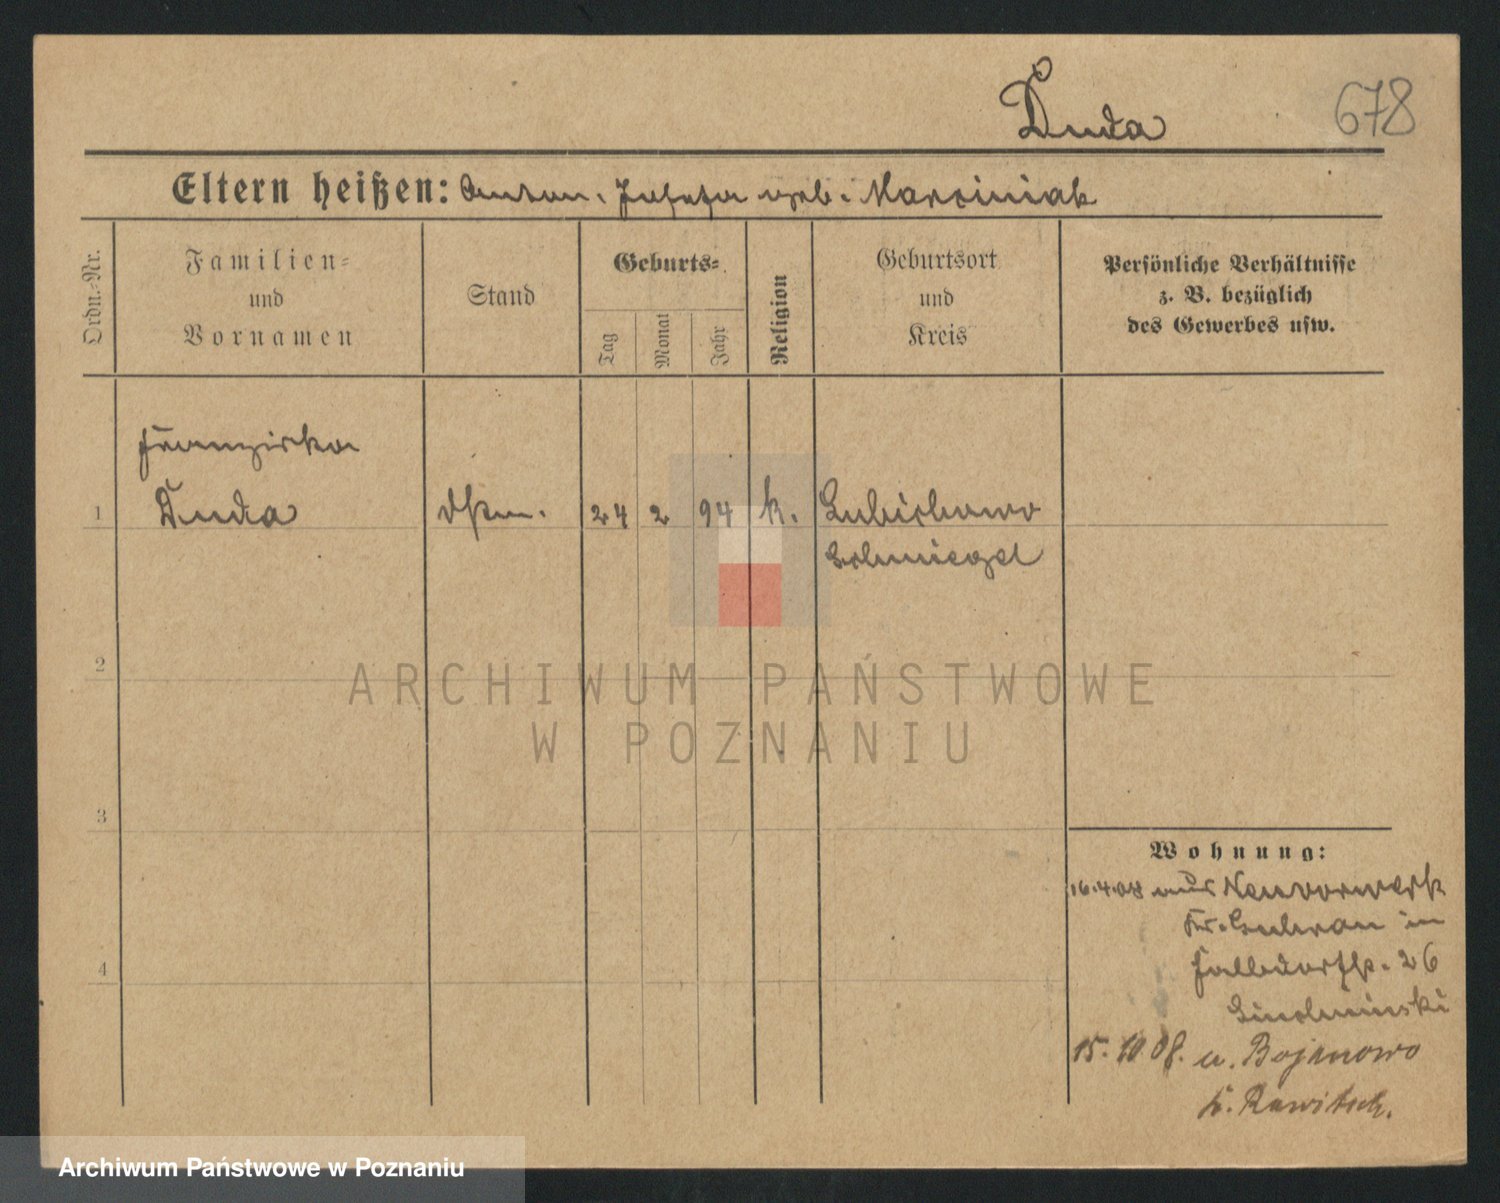 Duda
678
Eltern heißen: Anton, Josefa geb. Marciniak
Ordn.-Nr.
Familien- und Vornamen
Stand
Geburts-
Tag
Monat
Jahr
Religion
Geburtsort und Kreis
Persönliche Verhältnisse
z. B. bezüglich
des Gewerbes usw.
Franziska
1 Duda 24 2 94 k.
Schmiegel
2
3
4
Wohnung:
16.4.08 aus Neuvorwerk
Kr. Guhrau in
26
15.10.08. n. Bojanowo
K. Rawitsch.
ARCHIWUM PAŃSTWOWE
W POZNANIU
Archiwum Państwowe w Poznaniu